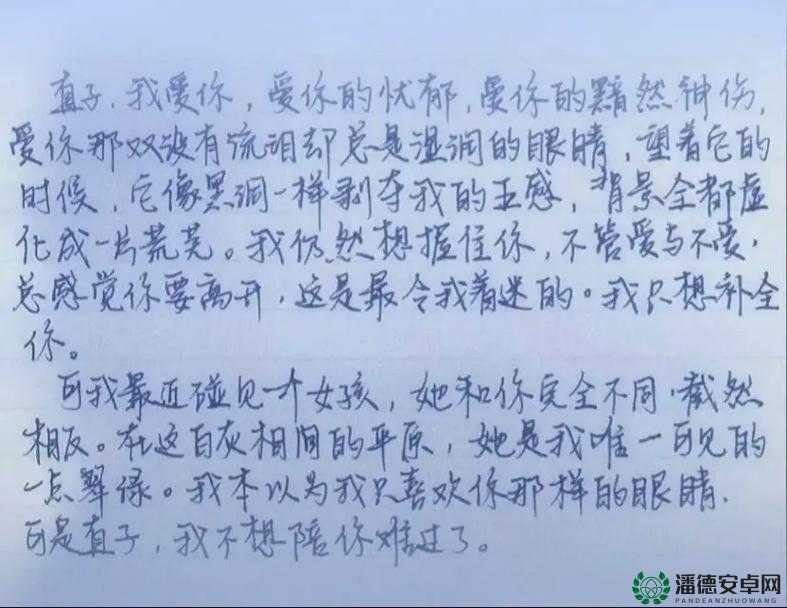 直子，我爱你，爱你的忧郁，爱你的黯然神伤，
爱你那双没有流泪却总是湿润的眼睛，望着它的
时候，它像黑洞一样剥夺我的五感，背景全都虚
化成一片荒芜。我仍然想握住你，不管爱与不爱，
总感觉你要离开，这是最令我着迷的。我只想补全
你。
可我最近碰见一个女孩，她和你完全不同，截然
相反。在这白灰相间的平原，她是我唯一可见的
一点翠绿。我本以为我只喜欢你那样的眼睛，
可是直子，我不想陪你难过了。
潘德安卓网
PANDEANZHUOWANG